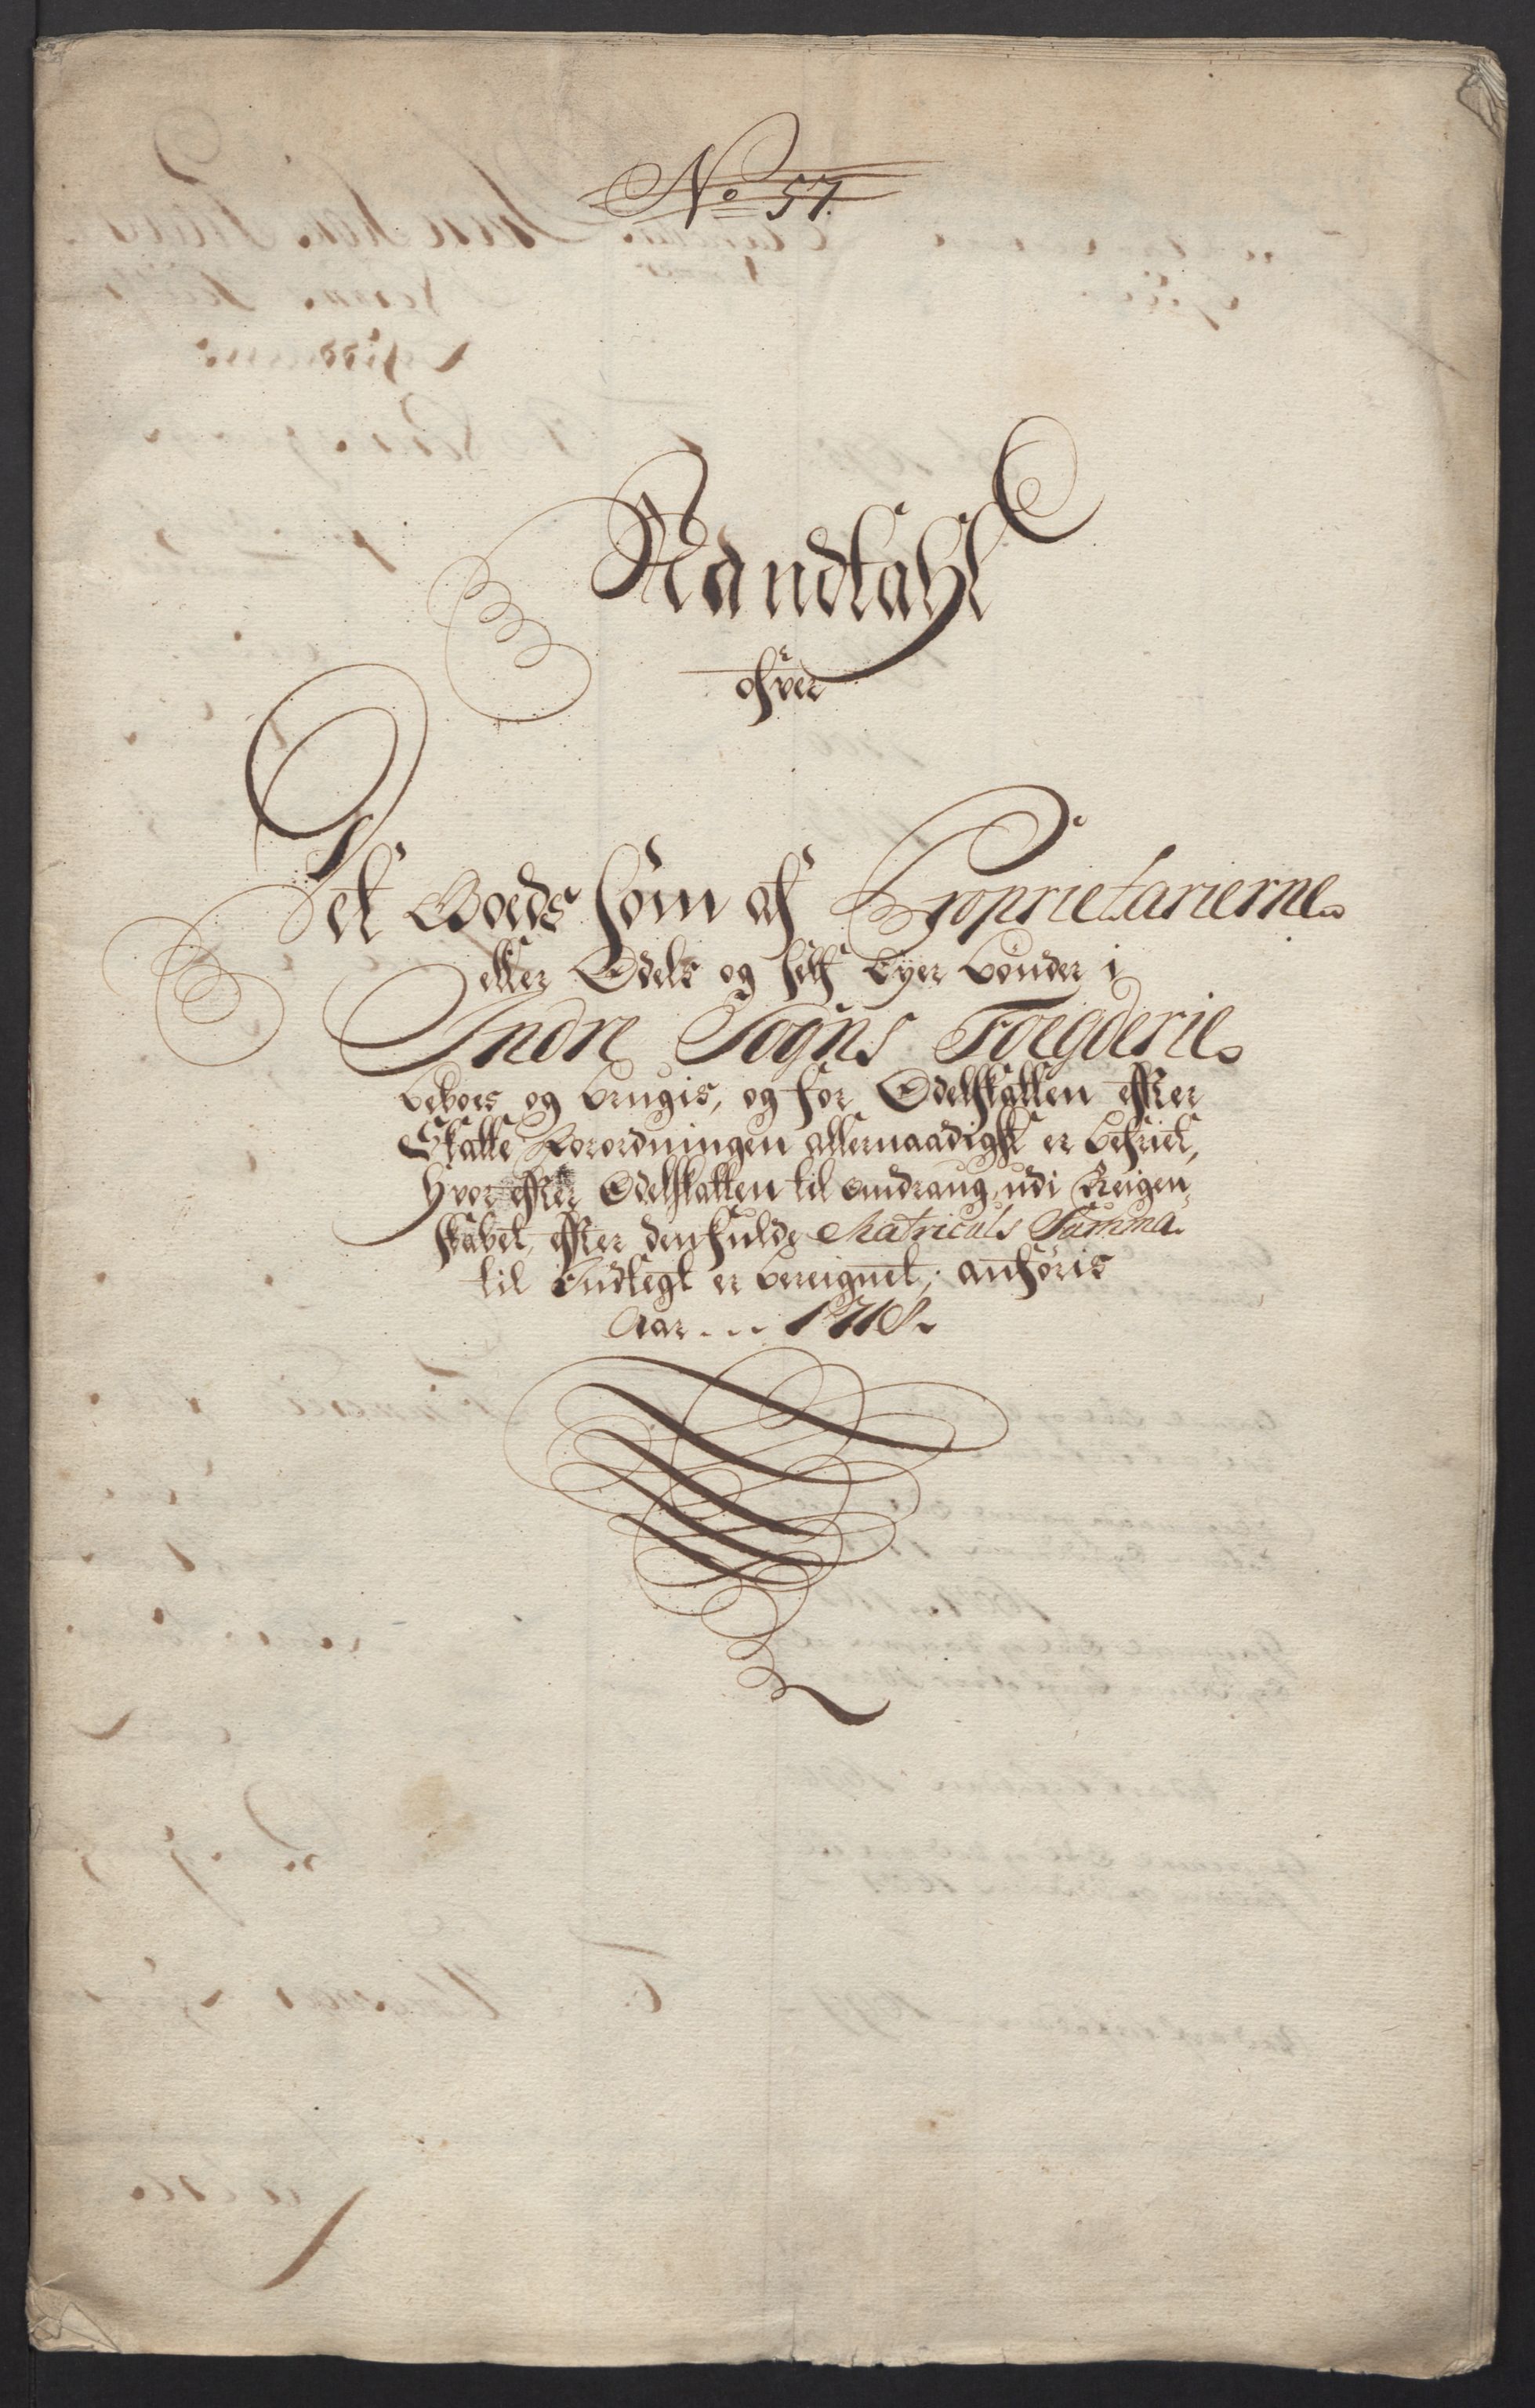 No 57.
Mandtahl
ofver
Det Goeds som af Proprietarierne
eller Odels og self Eyer Bønder i
Indre Sogns Foegderie
beboes og brugis, og for Odelskatten efter
Skatte Forordningen allernaadigst er befriet,
Hvor efter Odelskatten til Omdraug, udi Reigen-
skabet, efter den fulde Matriculs Summa
til Indtegt er bereignet, anføris
Aar . . . 1718.